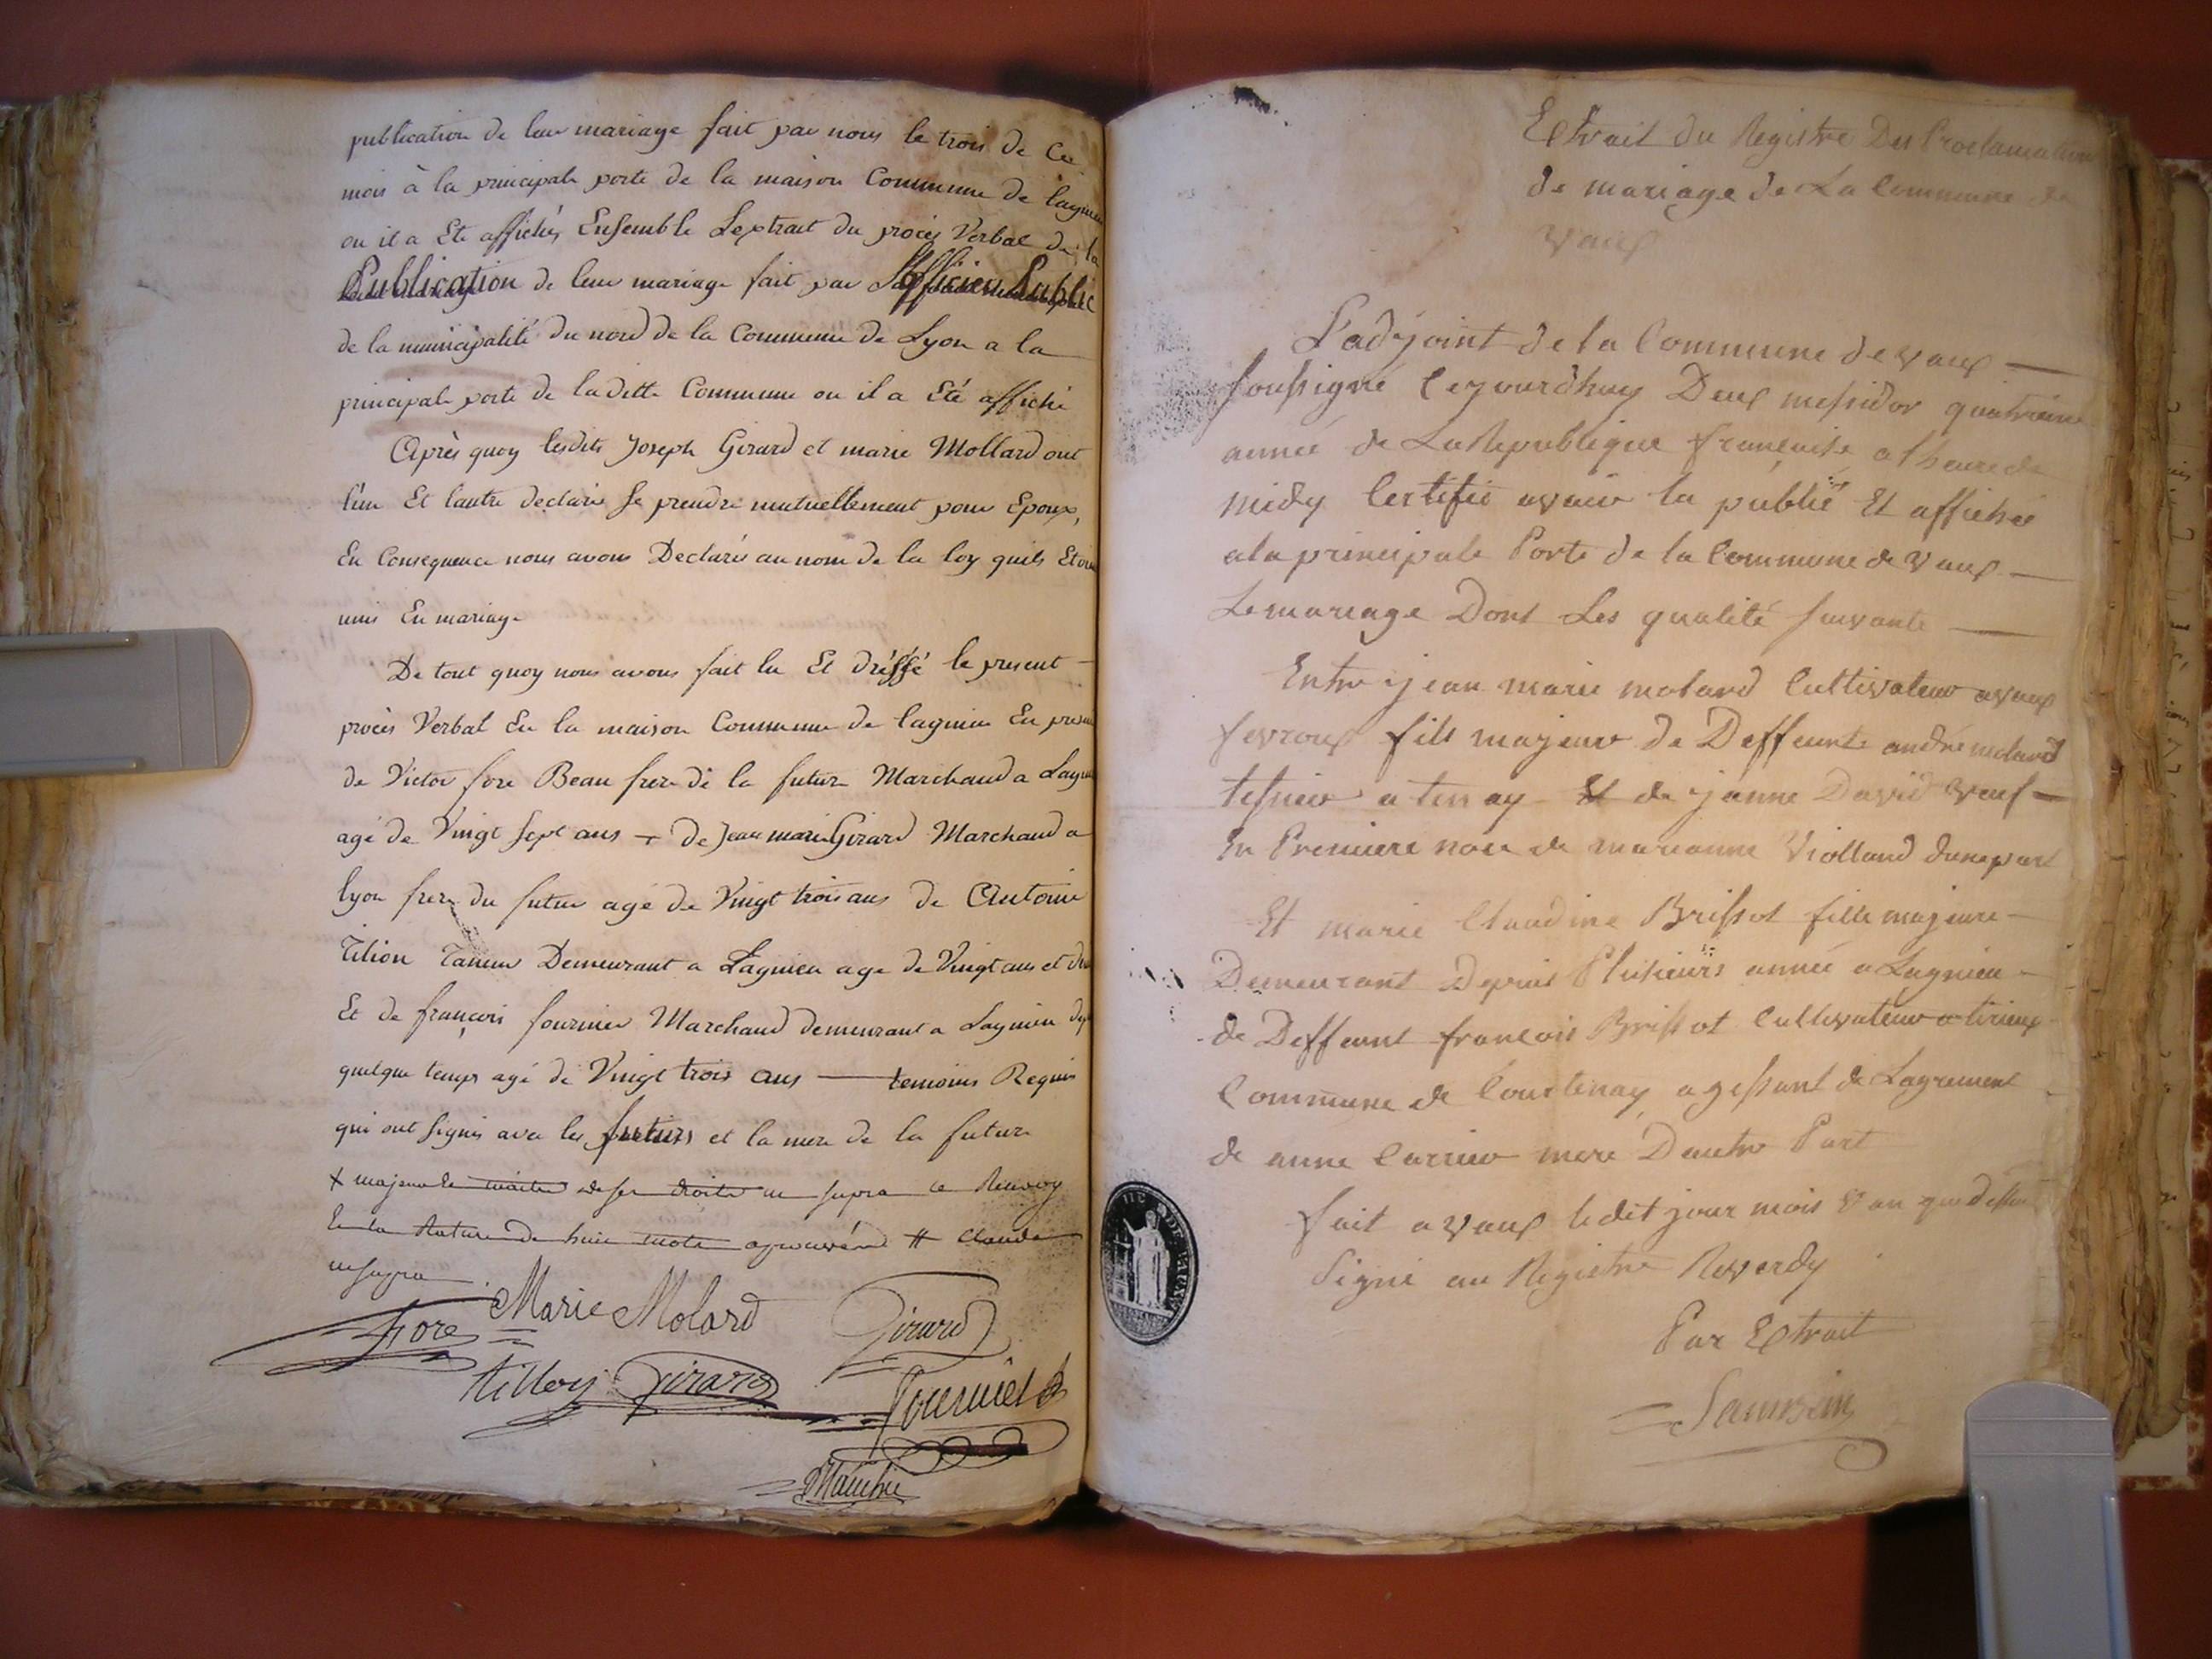 publication de leur mariage fait par nous le trois de Ce
mois à la principale porte de la maison Commune de lagnieu
ou il a Eté affichés Ensemble Lextrait du procès Verbal de la
Publication de leur mariage fait par L'officier Public
de la municipalité du nord de la Commune de Lyon a la
principale porte de laditte Commune ou il a Eté affiché
Après quoy lesdits Joseph Girard et marie Mollard ont
l'un Et lautre declaré Se prendre mutuellement pour Epoux,
En Consequence nous avons Declarés au nom de la loy quils Etoi
unis En mariage
De tout quoy nous avons fait lu Et dréssé le present
procès Verbal En la maison Commune de lagnieu En prese
de Victor fore Beau frere de la future Marchand a Lagni
agé de Vingt Sept ans + de Jean marie Girard Marchand a
lyon frere du futur agé de Vingt trois ans de Antoine
Tilion Taneur Demeurant a Lagnieu age de Vingt ans et
Et de françois fournier Marchand demeurant a Lagnieu
quelque temps agé de Vingt trois ans — temoins Requis
qui ont Signés avec les futurs et la mere de la future
+ majeur de maitre de ses droits ut supra ce Renvoy
En la Rature de huit mots approuvés # Claude
ut supra
Fore Marie Molard Girard
tillon Girard Fournier
Mauchie
Extrait du Registre Des Proclamation
de mariage de La Commune de
Vaux
L'adjoint de la Commune de vaux —
Soussigné Cejourdhuy Deux messidor quatrieme
année de La Republique française a lheure de
midy Certifie avoir lu publié Et affichée
a la principale Porte de la Commune de Vaux —
Le mariage Dont Les qualité Suivante —
Entre jean marie molard Cultivateur a vaux
fevroux fils majeur de Deffeunt andré molard
tessieur a tenay Et de janne David Veuf —
En Premiere noce de marianne Violland dunepart
Et marie Claudine Brissot fille majeure —
Demeurant Depuis Plusieurs année a Lagnieu —
de Deffeunt françois Brissot Cultivateur a tirieux
Commune de Courtenay agissant de Lagrement
de anne Carrier mere Dautre Part
fait a Vaux ledit jour mois & an que dessus
Signé au Registre Reverdy
Par Extrait